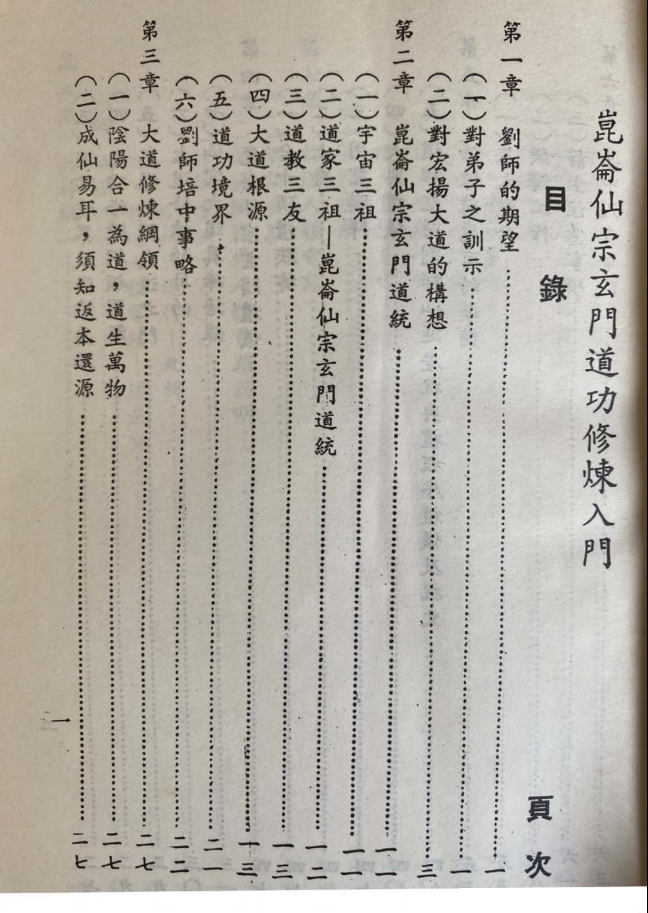 崑崙仙宗玄門道功修煉入門
目錄 頁次
第一章 劉師的期望……一
(一)對弟子之訓示……一
(二)對宏揚大道的構想……三
第二章 崑崙仙宗玄門道統……一一
(一)宇宙三祖……一一
(二)道家三祖—崑崙仙宗玄門道統……一二
(三)道教三友……一三
(四)大道根源……一三
(五)道功境界……二一
(六)劉師培中事略……二二
第三章 大道修煉綱領……二七
(一)陰陽合一為道,道生萬物……二七
(二)成仙易耳,須知返本還源……二七
一